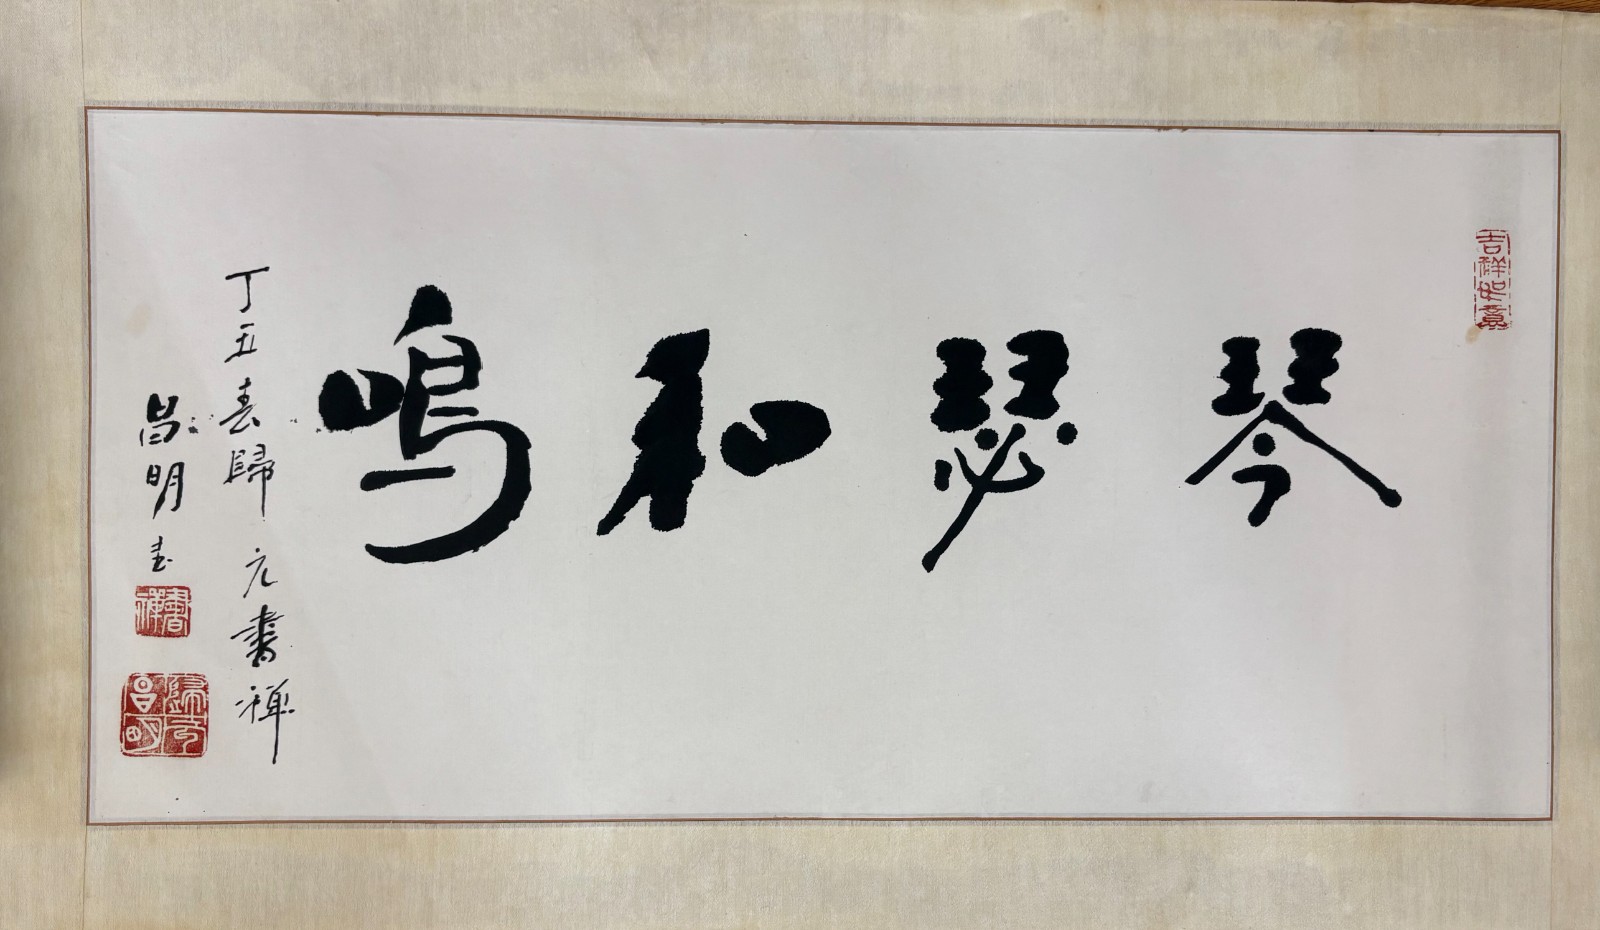 吉祥如意
琴瑟和鳴
丁丑春歸元書禅
昌明书
書禪
歸元昌明